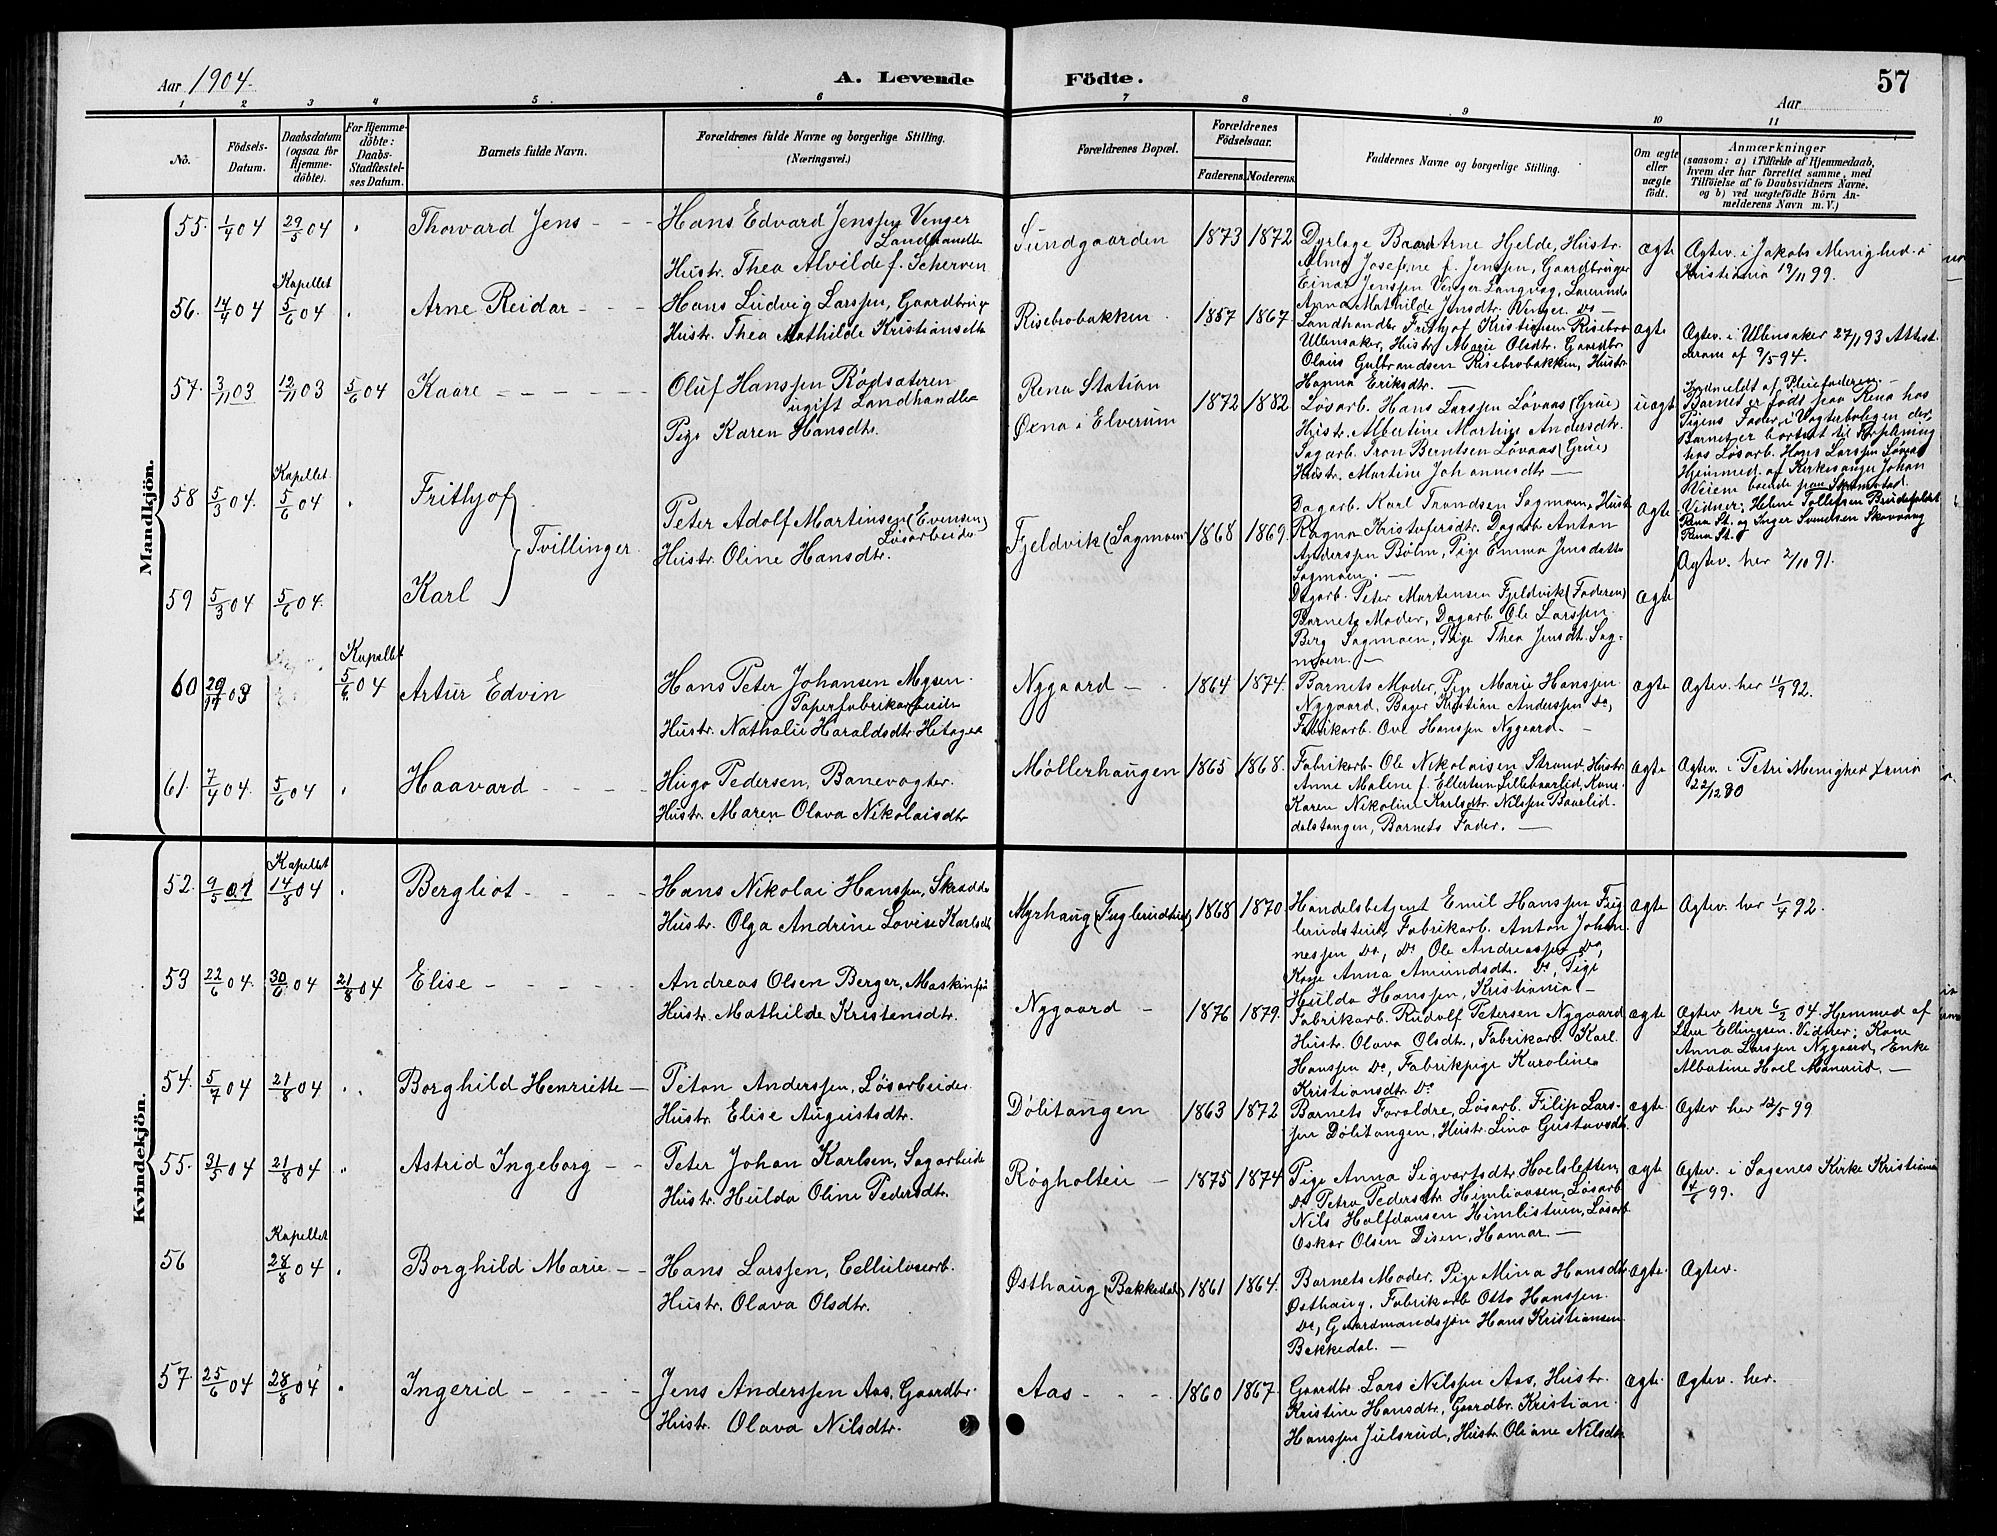 Aar 1904. A. Levende Födte. Aar 57
1 2 3 4 5 6 7 8 9 10 11
No. Födsels-Datum. Daabsdatum (ogsaa for Hjemme-döbte). For Hjemme-döbte: Daabs-Stadfæstel-ses Datum. Barnets fulde Navn. Forældrenes fulde Navne og borgerlige Stilling. (Næringsvei.) Forældrenes Bopæl. Forældrenes Födselsaar. Faderens. Moderens. Faddernes Navne og borgerlige Stilling. Om ægte eller uægte födt. Anmærkninger (saasom: a) i Tilfælde af Hjemmedaab, hvem der har forrettet samme, med Tilföielse af to Daabsvidners Navne. og b) ved uægtefödte Börn An-melderens Navn m. V.)
Mandkjön.
55. 1/4 04 29/5 04 Thorvard Jens Hans Edvard Jenssen Venger
Landhandler
Hustr. Thea Alvilde f. Scherven
Sundgaarden 1873 1872
Dyrlæge Baard Arne Hjelde, Hustr.
Alma Josefine f. Jenssen, Gaardbruger
Einar Jenssen Venger Langvag, Lærerinde
Anna Mathilde Jensdtr. Venger. Do
Ægte Ægtev. i Jakobs Menighed i
Kristiania 19/11 99.
56. 14/4 04 Kapellet 5/6 04 Arne Reidar Hans Ludvig Larssen, Gaardbrug
Hustr. Thea Mathilde Kristiansdtr
Risebrobakken 1857 1867
Landhandler Frithjof Kristiansen Risebro
Ullensaker, Hustr. Marie Olsdtr. Gaardbr
Olaus Gulbrandsen Risebrobakken, Hustr
Hanna Eriksdtr.
Ægte Ægtev. i Ullensaker 27/11 93 Attest
deraas af 9/5 94.
57. 3/11 03 12/11 03 5/6 04 Kaare Oluf Hanssen Rödsæteren
ugift Landhandler
Pige Karen Hansdtr.
Rena Station
Øxna i Elverum
1872 1882
Løsarb. Hans Larssen Løvaas (Grue)
Hustr. Albertine Martine Andersdtr.
Sagarb. Tron Berntsen Løvaas (Grue)
Hustr. Martine Johannesdtr
uægt Indmeldt af Pleiefaderen.
Barnet er født paa Rena hos
Pigens Fader i Vogterboligen der,
Barnet er bortsat til Forpleining
hos Løsarb. Hans Larssen Løvaas
Hjemmed. af Kirkesanger Johan
Veiem boende paa
Vidner: Helene Tollefsen Brudefaldet
Rena St. og Inger Svendsen Skavvang
Rena St.
58 5/3 04. Kapellet 5/6 04 Frithjof
Tvillinger.
Peter Adolf Martinsen (Evensen)
Løsarbeider
Hustr. Oline Hansdtr.
Fjeldvik (Sagmoen) 1868 1869.
Dagarb. Karl Trondsen Sagmoen, Hustr
Ragna Kristofersdtr. Dagarb. Anton
Anderssen Bølm, Pige Emma Jensdatter
Sagmoen.
Ægte Ægtev. her 2/10 91.
59 5/3 04 5/6 04. Karl
Dagarb. Peter Martensen Fjeldvik (Faderen)
Barnets Moder, Dagarb. Ole Larssen
Berg Sagmoen, Pige Thea Jensdtr. Sag-
moen.
Ægte
60 03 Kapellet 5/6 04 Artur Edvin Hans Peter Johansen Mysen.
Papirfabrikarbeider
Hustr. Nathalie Haraldsdtr
Nygaard 1864 1874.
Barnets Moder, Pige Marie Hanssen
Nygaard, Bager Kristian Anderssen Do,
Fabrikarb. Ove Hanssen Nygaard.
Ægte Ægtev. her 11/9 92.
61. 7/4 04. 5/6 04 Haavard Hugo Pedersen, Banevogter.
Hustr. Maren Olava Nikolaisdtr
Møllerhaugen 1865 1868.
Fabrikarb. Ole Nikolaisen Strand, Hustr
Anne Malene f. Ellertsen Lillebaarlid, Kone
Karen Nikoline Karlsdtr. Nilssen Baarlid.
dalstangen, Barnets Fader.
Ægte Ægtev. i Petri Menighed
22/12 90
Kvindekjön.
52. 9/5 01 Kapellet 14/8 04 Bergliot Hans Nikolai Hanssen, Skrædder
Hustr. Olga Andrine Lovise Karlsdtr
Myrhaug (Fuglerudstuen) 1868 1870.
Handelsbetjent Emil Hanssen Fug
lerudstuen, Fabrikarb. Anton Johan-
nessen Do, Do Ole Andreassen Do,
Kone Anna Amundsdtr. Do, Pige
Hulda Hanssen, Kristiania
Ægte Ægtev. her 1/4 92.
53 22/6 04. 30/6 04 21/8 04 Elise Andreas Olsen Berger, Maskinfør
Hustr. Mathilde Kristensdtr.
Nygaard 1876 1879.
Fabrikarb. Rudolf Petersen Nygaard
Hustr. Olava Olsdtr., Fabrikarb. Karl
Hanssen Do, Fabrikpige Karoline
Kristiansdtr. Do
Ægte Ægtev her 6/2 04. Hjemmed af
Lærer Ellingsen. Vidner: Kone
Anna Larssen Nygaard, Enke
Albertine Hoel Monerud.
54. 5/7 04 21/8 04 Borghild Henriette Peton Anderssen, Løsarbeider
Hustr. Elise Augustsdtr.
Dölitangen 1863 1872
Barnets Forældre, Løsarb. Filip Lars-
sen Dölitangen, Hustr. Lina Gustavsdtr.
Ægte Ægtev her 12/5 99
55. 31/5 04 21/8 04 Astrid Ingeborg Peter Johan Karlsen, Sagarbeider
Hustr. Hulda Oline Pedersdtr.
Røgholtsei 1875 1874
Pige Anna Sigvartsdtr. Hoelsletten,
Do Petra Pedersdtr. Himliaasen, Løsarb
Nils Halfdansen Himlistuen, Løsarb
Oskar Olsen Disen, Hamar.
Ægte Ægtev. i Sagenes Kirke Kristiania
4/6 99.
56 Kapellet 28/8 04 Borghild Marie Hans Larssen, Cellulosearb.
Hustr. Olava Olsdtr.
Østhaug (Bakkedal) 1861 1864.
Barnets Moder, Pige Mina Hansdtr
Østhaug, Fabrikarb Otto Hanssen
Do, Gaardmandssøn Hans Kristiansen
Bekkedal.
Ægte. Ægtev.
57. 25/6 04 28/8 04 Ingerid Jens Anderssen Aas, Gaardbr.
Hustr. Olava Nilsdtr.
Aas 1860 1867.
Gaardbr. Lars Nilssen Aas, Hustr.
Kristine Hansdtr, Gaardbr. Kristian
Hanssen Julsrud, Hustr. Oliane Nilsdtr
Ægte. Ægtev. her.